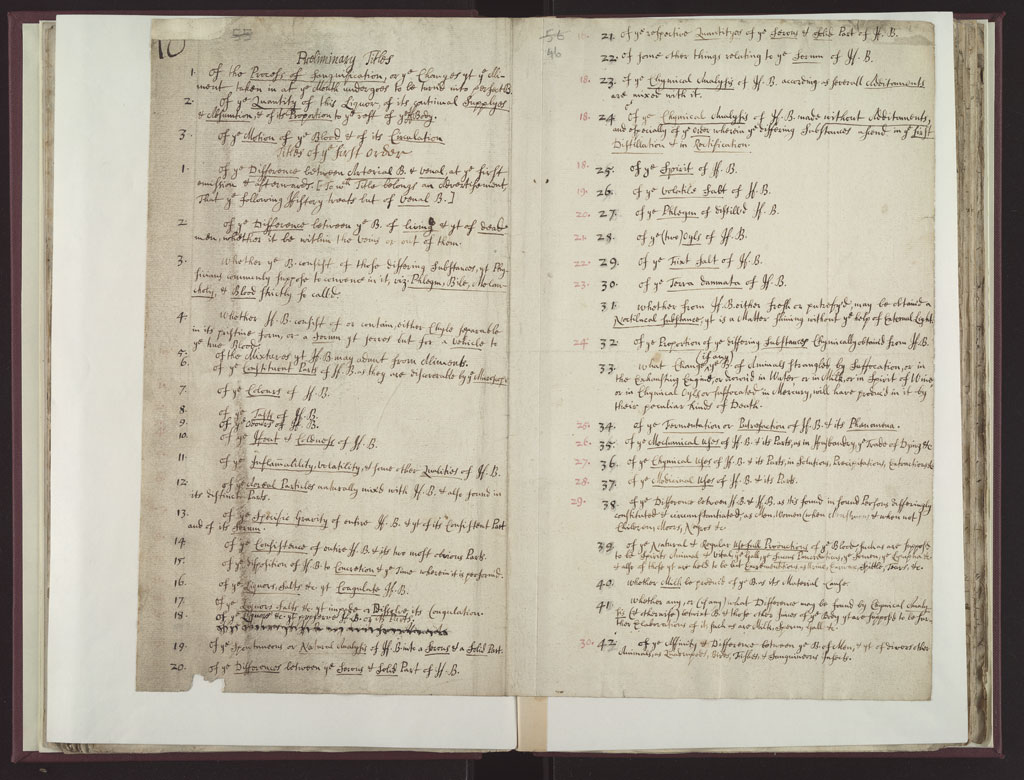 10
55
Preliminary Titles
1. Of the Process of Sanguification, or ye Changes yt ye Ali-
ment, taken in at ye Mouth undergoes to be turnd into perfect B.
2. Of ye Quantity of this Liquor, of its continual Supplyes
& Absumtion, & of its Proportion to ye rest of ye Body.
3. Of ye Motion of ye Blood & of its Circulation
Titles of ye first order
1. Of ye Difference between Arterial B. & venal, at ye first
emission & afterwards. [To wch Title belongs an Advertisement
That ye following History treats but of venal B.]
2. Of ye Difference between ye B. of living & yt of dead
men, whether it be within the veins or out of them.
3. Whether ye B. consist of those differing Substances, yt Phy-
sitians commonly suppose to convene in it, viz. Phlegm, Bile, Melan-
choly, & Blood strictly so calld.
4. Whether H.B. consist of or contain, either Chyle separable
in its pristine form, or a Serum yt serves but for a Vehicle to
ye true Blood.
5. Of the Mixtures yt H.B. may admit from Aliments.
6. Of ye Consistent Parts of H.B. as they are discoverable by ye Microscope
7. Of ye Colours of H.B.
8. Of ye Tasts of H.B.
9. Of ye Odours of H.B.
10. Of ye Heat & Coldness of H.B.
11. Of ye Inflamability, volatility, & some other Qualities of H.B.
12. Of ye Aereal Particles naturally mixd with H.B. & also found in
its distinct Parts.
13. Of ye Specific Gravity of entire H.B. & yt of its Consistent Part
and of its Serum.
14 Of ye Consistence of entire H.B. & its two most obvious Parts.
15. Of ye disposition of H.B. to Concretion & ye Time wherein it is performd.
16. Of ye Liquors, Salts &c. yt Coagulate H.B.
17. Of ye Liquors Salts &c yt impede or Dissolve, its Coagulation.
18. Of ye Liquors &c yt preserve H.B. or its Parts.
19. Of ye Spontaneous or Natural Analysis of H.B. into a Serous & a Solid Part.
20. Of ye Differences between ye Serous & Solid Part of H.B.
56
46
16. 21. Of ye respective Quantityes of ye Serous & Solid Part of H.B.
22. Of some other things relating to ye Serum of H.B.
18. 23. Of ye Chymical Analysis of H.B. according as severall Additaments
are mixed with it.
18. 24 Of ye Chymical Analysis of H.B. made without Additaments,
and especially of ye order wherein ye differing Substances ascend in ye first
Distillation & in Rectification.
18. 25. Of ye Spirit of H.B.
19. 26. Of ye Volatile Salt of H.B.
20. 27. Of ye Phlegm of distill'd H.B.
21. 28. Of ye (two) Oyls of H.B.
22. 29. Of ye Fixt Salt of H.B.
23. 30. Of ye Terra damnata of H.B.
31. Whether from H.B. either fresh or putrefy'd, may be obtaind a
Noctilucal Substance, yt is a Matter shining without ye help of External Light.
24. 32. Of ye Proportion of ye differing Substances Chymically obtaind from H.B.
33. What Changes (if any) ye B. of Animals strangled by Suffocation, or in
the Exhausting Engine, or drown'd in Water or in Milk, or in Spirit of Wine
or in Chymical Oyls or suffocated in Mercury, will have produc'd in it by
their peculiar kinds of Death.
25. 34. Of ye Fermentation or Putrefaction of H.B. & its Phænomena.
26. 35. Of ye Mechanical Uses of H.B. & its Parts, as in Husbandry, ye Trade of Dying &c
27. 36. Of ye Chymical Uses of H.B. & its Parts, in Solutions, Precipitations, Extractions &c
28. 37. Of ye Medicinal Uses of H.B. & its Parts.
29. 38. Of ye Difference between H.B. & H.B. as tis found in sound Persons differingly
constituted & circumstantiated, as Men, Women (when & when not
Children, Moors, Negros &c
39. Of ye Natural & Regular Usefull Productions of ye Blood, such as are suppos'd
to be Spirits Animal & Vital, ye Gall, ye Succus Pancreaticus, ye Semen, ye Lympha &c
& also of those yt are held to be but Excrementitious, as Urine, Spittle, Tears, &c.
40. Whether Milk be produc'd of ye B. as its Material Cause.
41. Whether any, or (if any) what Difference may be found by Chymical Analy-
sis (& otherwise) betwixt B. & those other Juices of ye Body yt are suppos'd to be fur-
ther Elaborations of it, such as are Milk, Sperm, Gall &c.
30. 42. Of ye Affinity & Difference between ye B. of Men, & yt of divers other
Animals, as Quadrupeds, Birds, Fishes, & Sanguineous Insects.